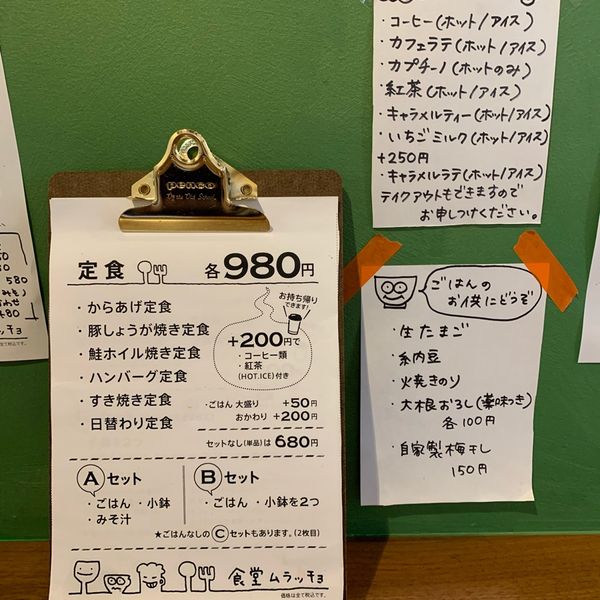 ・コーヒー(ホット/アイス)
・カフェラテ(ホット/アイス)
・カプチーノ(ホットのみ)
・紅茶(ホット/アイス)
・キャラメルティー(ホット/アイス)
・いちごミルク(ホット/アイス)
+250円
・キャラメルラテ(ホット/アイス)
テイクアウトもできますので
お申しつけください。
penco
定食 各980円
・からあげ定食
・豚しょうが焼き定食
・鮭ホイル焼き定食
・ハンバーグ定食
・すき焼き定食
・日替わり定食
お持ち帰り
できます!
+200円で
・コーヒー類
・紅茶
(HOT.ICE)付き
・ごはん 大盛り ・+50円
おかわり ・+200円
セットなし(単品)は680円
Aセット
・ごはん ・小鉢
・みそ汁
Bセット
・ごはん ・小鉢を2つ
★ごはんなしのCセットもあります。(2枚目)
食堂ムラッチョ
価格は全て税込です。
ごはんの
お供にどうぞ
・生たまご
・納豆
・火焼きのソ
・大根おろし(薬味つき)
各100円
・自家製梅干し
150円
580
480